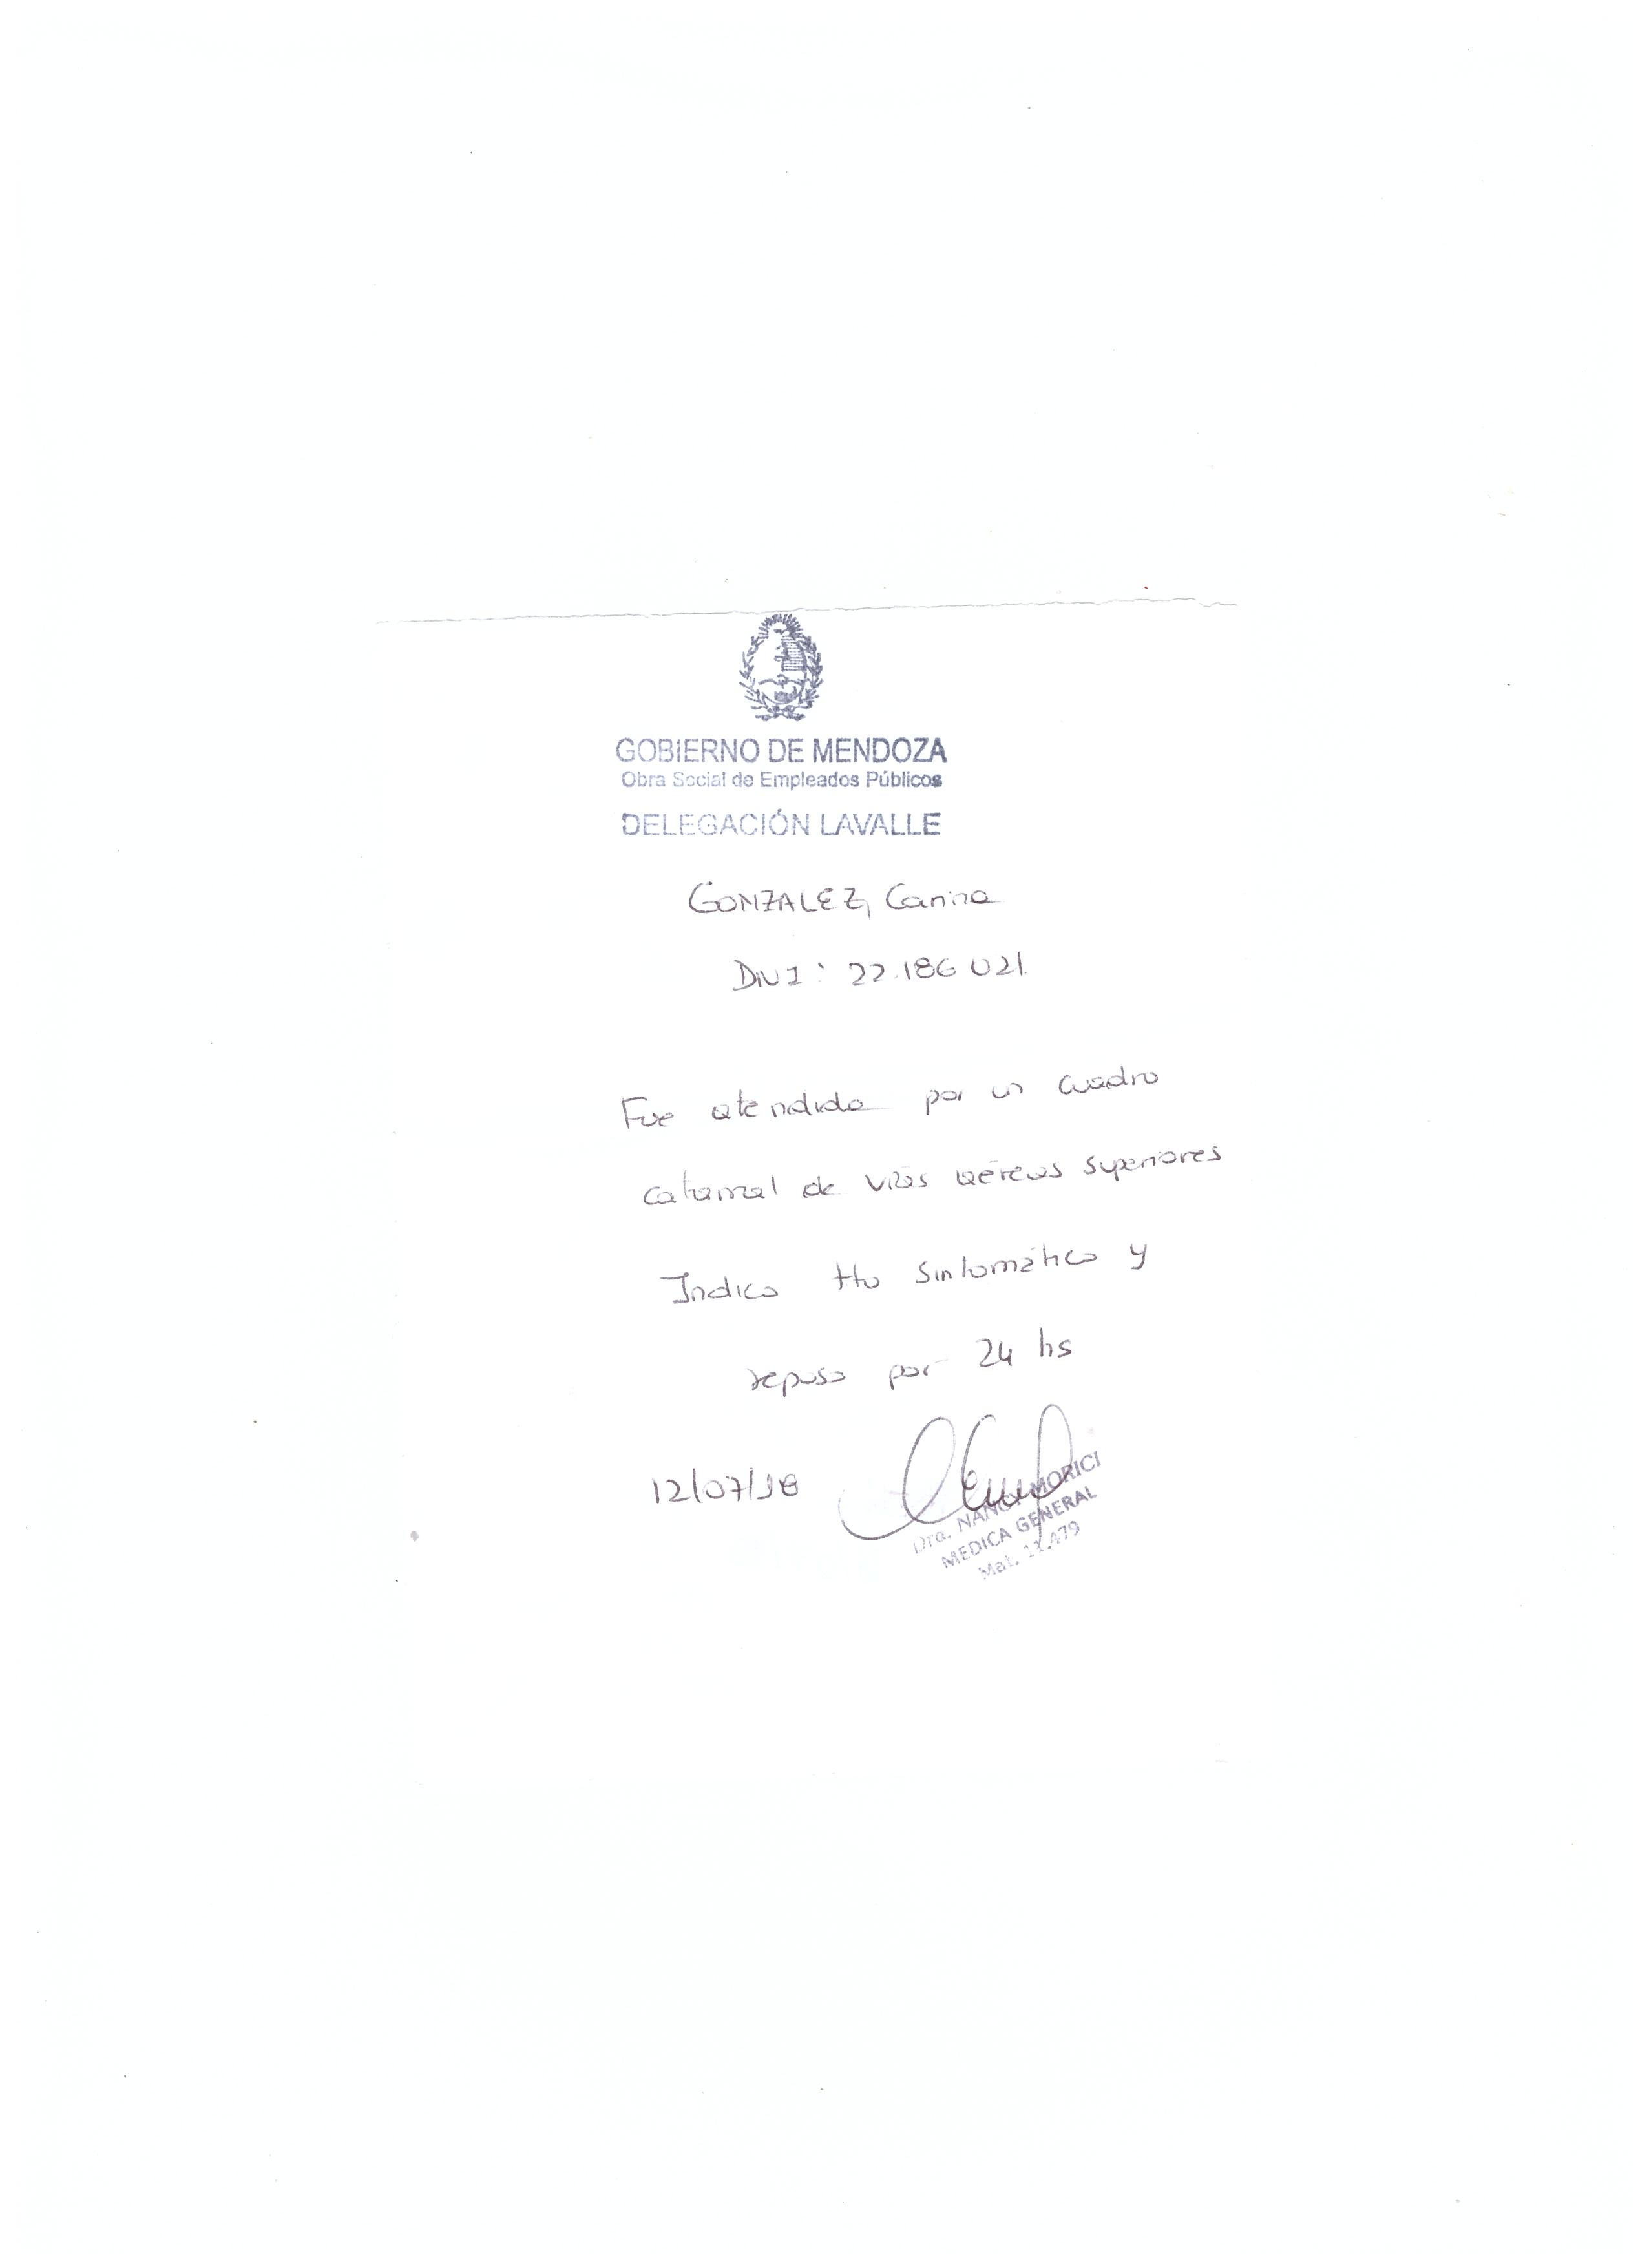 GOBIERNO DE MENDOZA
Obra Social de Empleados Públicos
DELEGACIÓN LAVALLE
GONZALEZ, Carina
DNI: 22.186 021
Fue atendida por un cuadro
catarral de vías aéreas superiores
Indico tto sintomático y
reposo por 24 hs
12/07/18
Dra. NANCY MORICI
MEDICA GENERAL
Mat. 11.479